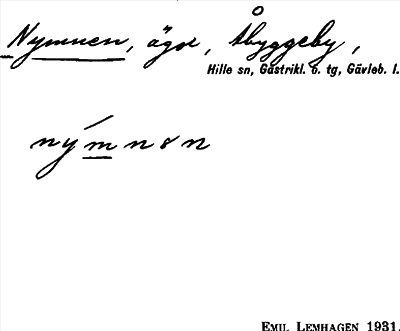 Nymnen, ägor, Åbyggeby,
Hille sn, Gästrikl. ö. tg, Gävleb. l.
nýmnən
EMIL LEMHAGEN 1931.